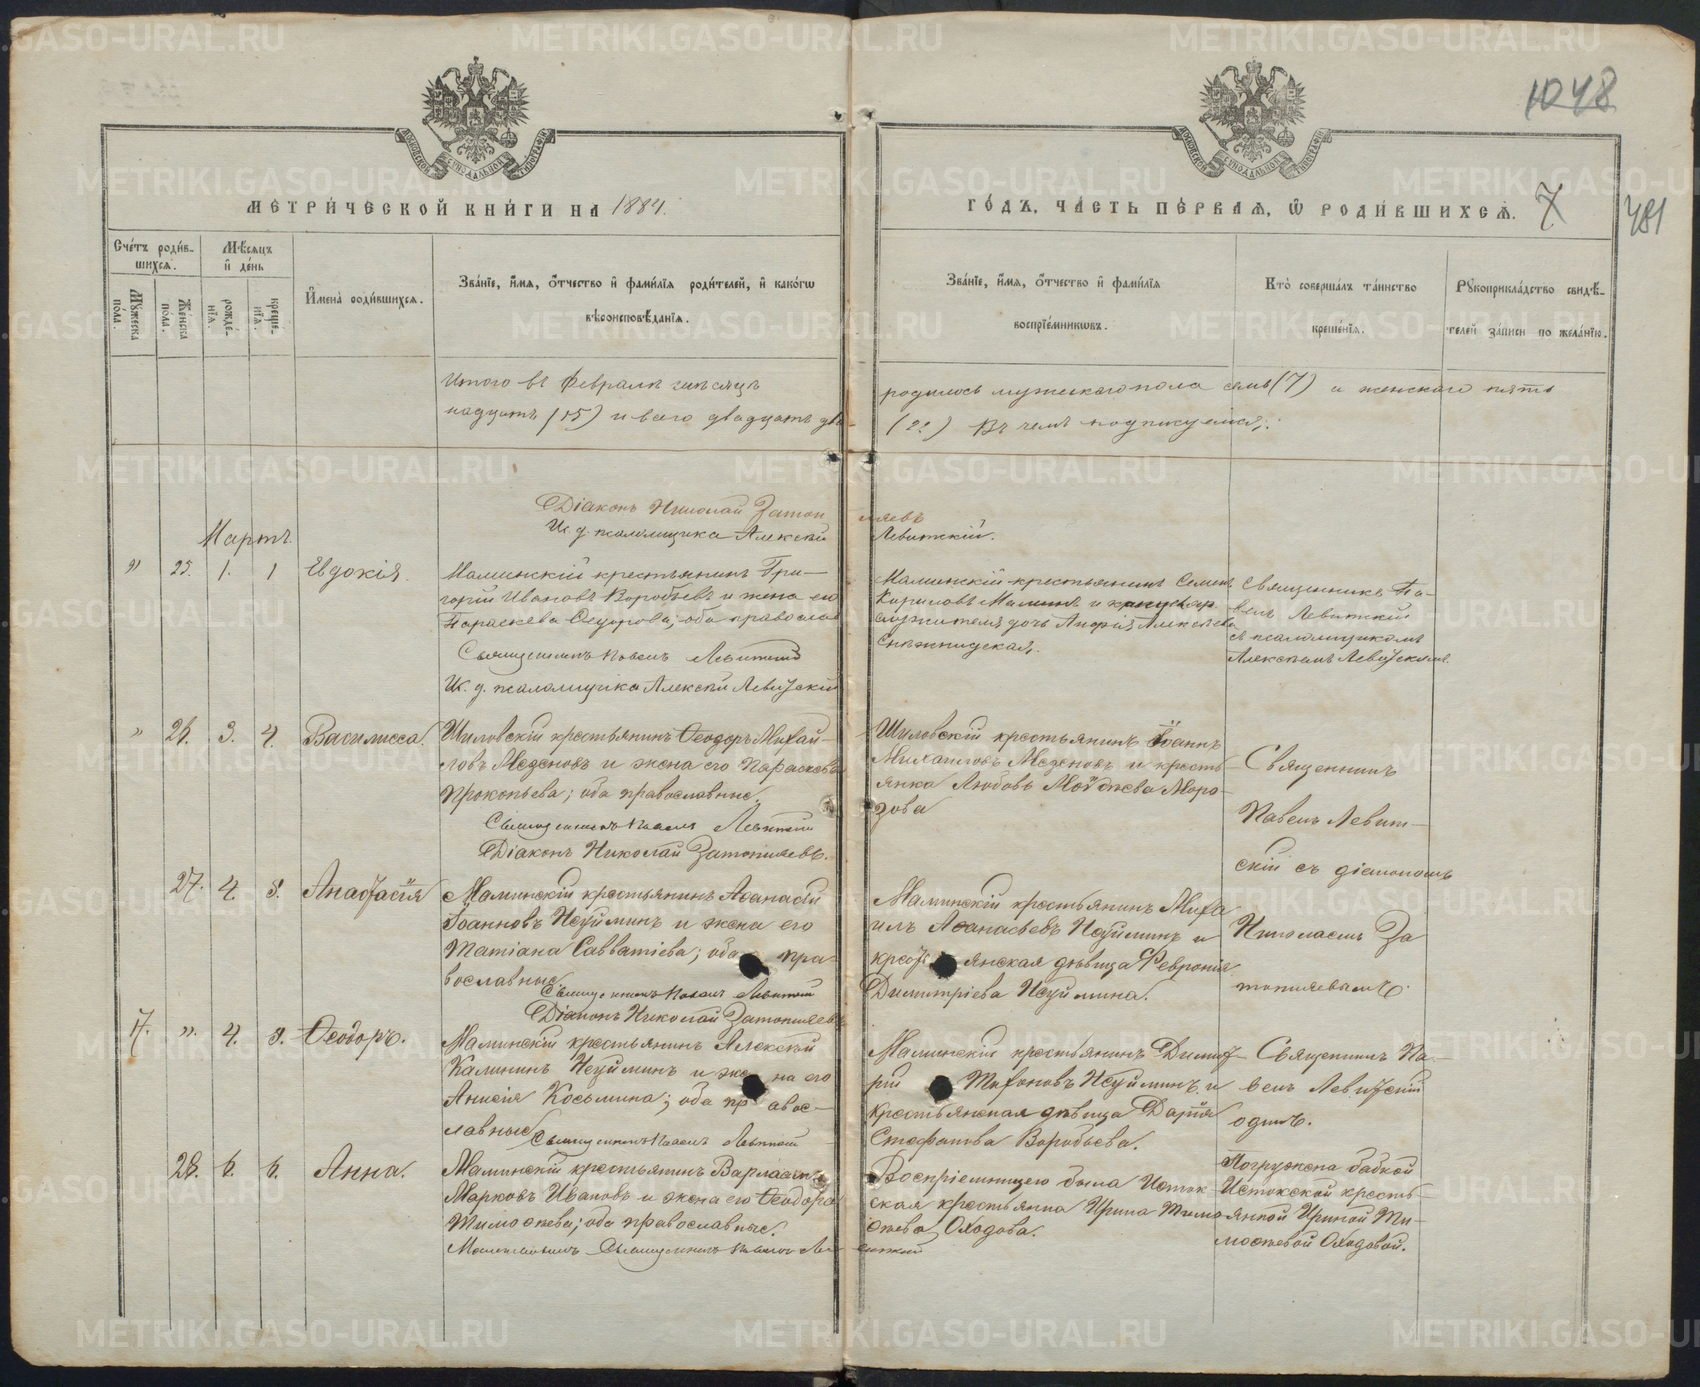 1048
481
МЕТРИ́ЧЕСКОЙ КНИ́ГИ НА 1884.
ГО́ДЪ, ЧА́СТЬ ПЕ́РВАЯ, Ѽ РОДИ́ВШИХСЯ. 7
Сче́тъ роди́в-
шихся.
Мѣ́сяцъ
и҆ де́нь
Мꙋ́жеска
по́ла.
Же́нска
по́ла.
рожде́-
нїя.
креще́-
нїя.
И҆мена̀ роди́вшихся.
Зва́нїе, и҆́мя, ѻ҆́тчество и҆ фами́лїя роди́телей, и҆ како́гѡ
вѣроисповѣ́данїя.
Зва́нїе, и҆́мя, ѻ҆́тчество и҆ фами́лїя
воспрїе́мникѡвъ.
Кто̀ соверша́лъ та́инство
креще́нїя.
Рꙋкоприкла́дство свидѣ́-
телей за́писи по жела́нїю.
Итого въ Февралѣ мѣсяцѣ
надцать (15) и всего двадцать два
родилось мужескаго пола семь (7) а женскаго пять
(22) Въ чемъ подписуемся:
Діаконъ Николай Затопляевъ
И. д. псаломщика Алексѣй Левитскій.
Мартъ
" 25. 1. 1 Евдокія.
Маминскій крестьянинъ Гри-
горій Ивановъ Воробьевъ и жена его
Параскева Ѳедорова; оба православ
Священникъ Павелъ Левитскій
И. д. псаломщика Алексѣй Левитскій
Маминскій крестьянинъ Семенъ
Кириловъ Маминъ и
дочь Алексѣева
Священникъ Па-
велъ Левитскій
съ псаломщикомъ
Алексѣемъ Левитскимъ.
" 26. 3. 4. Василисса.
Шиловскій крестьянинъ Ѳеодоръ Михай-
ловъ Мезеновъ и жена его Параскева
Прокопьева; оба православные.
Священникъ Павелъ Левитскій
Діаконъ Николай Затопляевъ.
Шиловскій крестьянинъ Іоаннъ
Михаиловъ Мезеновъ и кресть-
янка Любовь Моѵсеева Моро-
зова
Священникъ
Павелъ Левит-
скій съ діакономъ
Николаемъ За
топляевымъ.
27. 4. 8. Анастасія
Маминскій крестьянинъ Аѳанасій
Іоанновъ Неуйминъ и жена его
Татіана Савватіева; оба пра-
вославные.
Священникъ Павелъ Левитскій
Діаконъ Николай Затопляевъ
Маминскій крестьянинъ Миха
илъ Аѳанасьевъ Неуйминъ и
крестьянская дѣвица Февронія
Димитріева Неуймина.
17. " 4. 8. Ѳеодоръ.
Маминскій крестьянинъ Алексѣй
Калининъ Неуйминъ и жена его
Анисія Косьмина; оба правос-
лавные
Священникъ Павелъ Левитскій
Маминскій крестьянинъ Димит-
рій Тихоновъ Неуйминъ и
крестьянская дѣвица Дарія
Стефанова Воробьева.
Священникъ Па-
велъ Левитскій
одинъ.
28. 6. 6. Анна.
Маминскій крестьянинъ Варлаамъ
Марковъ Ивановъ и жена его Ѳеодора
Тимоѳеева; оба православные.
Молитвилъ Священникъ Павелъ Левитскій
Воспріемницею была Исток-
ская крестьянка Ирина Тимо
ѳеева Оходова.
Погружена бабкой
Истокской кресть-
янкой Ириной Ти-
моѳеевой Оходовой.